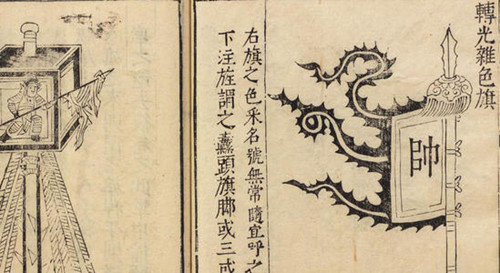 轉光雜色旗
帥
右旗之色采名號無常隨宜呼之
下注旌謂之纛頭旗脚或三或